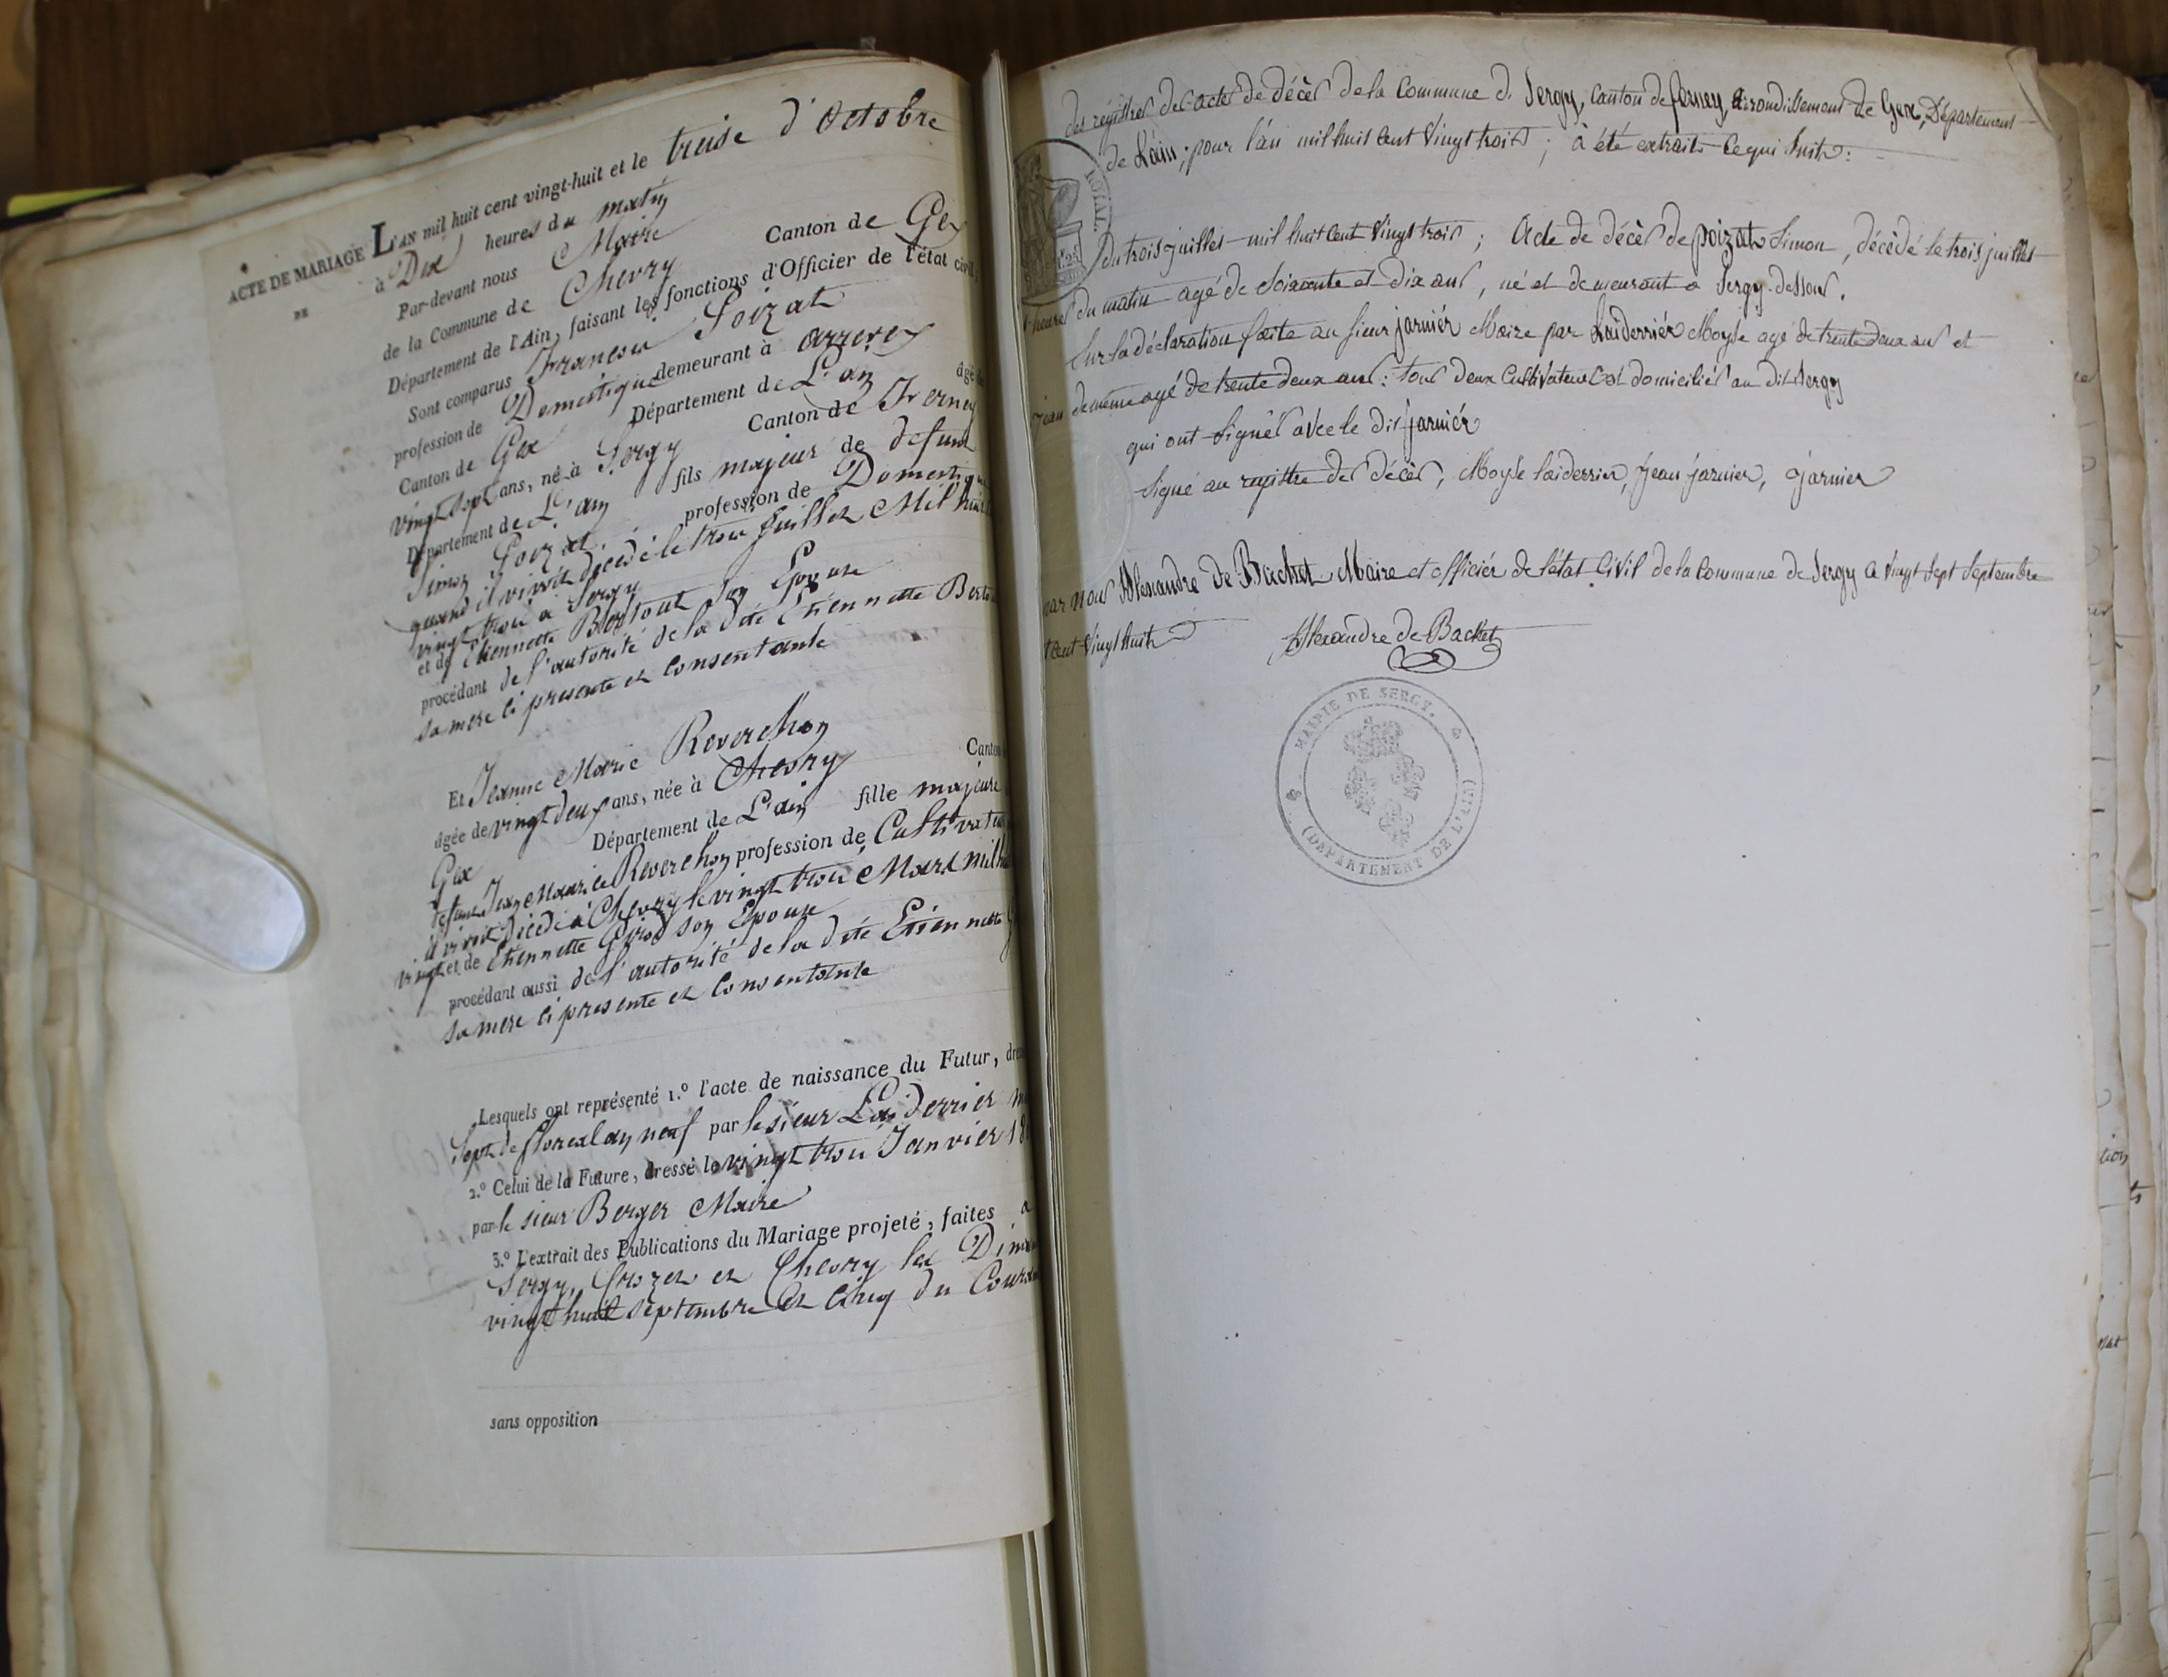 ACTE DE MARIAGE
DE
L'AN mil huit cent vingt-huit et le treise d'octobre
à Dix heures du matin
Par-devant nous Maire
de la Commune de Chevry Canton de Gex
Département de l'Ain, faisant les fonctions d'Officier de l'état civil,
Sont comparus François Poizat
profession de Domestique demeurant à
Canton de Gex Département de L'ain âgé de
vingt sept ans, né à Sergy Canton de Ferney
Département de L'ain fils majeur de defunt
Simon Poizat profession de Domestique
quand il vivoit décédé le trois Juillet Mil huit
vingt trois a Sergy
et de Etiennette Bertout son Epouse
procédant de l'autorité de la dite Etiennette
sa mere ci presente et consentante
Et Jeanne Marie Reverchon
âgée de vingt deux ans, née à Chevry Canton
Gex Département de L'ain fille majeure
defunt Jean Marie Reverchon profession de Cultivateur
il vivoit Décédé à Chevry le vingt trois Mars mil
vingt et de Etiennette Girod son Epouse
procédant aussi de l'autorité de la dite Etiennette
sa mere ci presente et consentante
Lesquels ont représenté 1.º l'acte de naissance du Futur,
Sept de floreal an neuf par le sieur Laiderrier
2.º Celui de la Future, dressé le vingt trois Janvier
par le sieur Berger Maire
3.º L'extrait des Publications du Mariage projeté, faites a
Sergy, Crozet et Chevry les
vingt huit septembre et cinq du Courant
sans opposition
des régistres des actes de décès de la Commune de Sergy, Canton de ferney, Arrondissement de Gex, Département
de L'ain, pour l'an mil huit cent Vingt trois ; à été extrait ce qui suit :
ROYAL
du trois juillet mil huit cent Vingt trois ; Acte de décès de poizat Simon, décédé le trois juillet
heures du matin agé de soixante et dix ans, né et demeurant a Sergy-dessous.
Sur la déclaration faite au sieur jarnier Maire par Laiderrier Moyse agé de trente deux ans et
jean de même agé de trente deux ans : tous deux Cultivateurs et domiciliés au dit Sergy
qui ont signés avec le dit jarnier
Signé au registre des décès, Moyse laiderrier, jean jarnier, jarnier
par nous Alexandre de Bachet Maire et officier de l'état Civil de la Commune de Sergy a Vingt sept Septembre
cent Vingt huit
Alexandre de Bachet
MAIRIE DE SERGY.
(DÉPARTEMENT DE L'AIN)